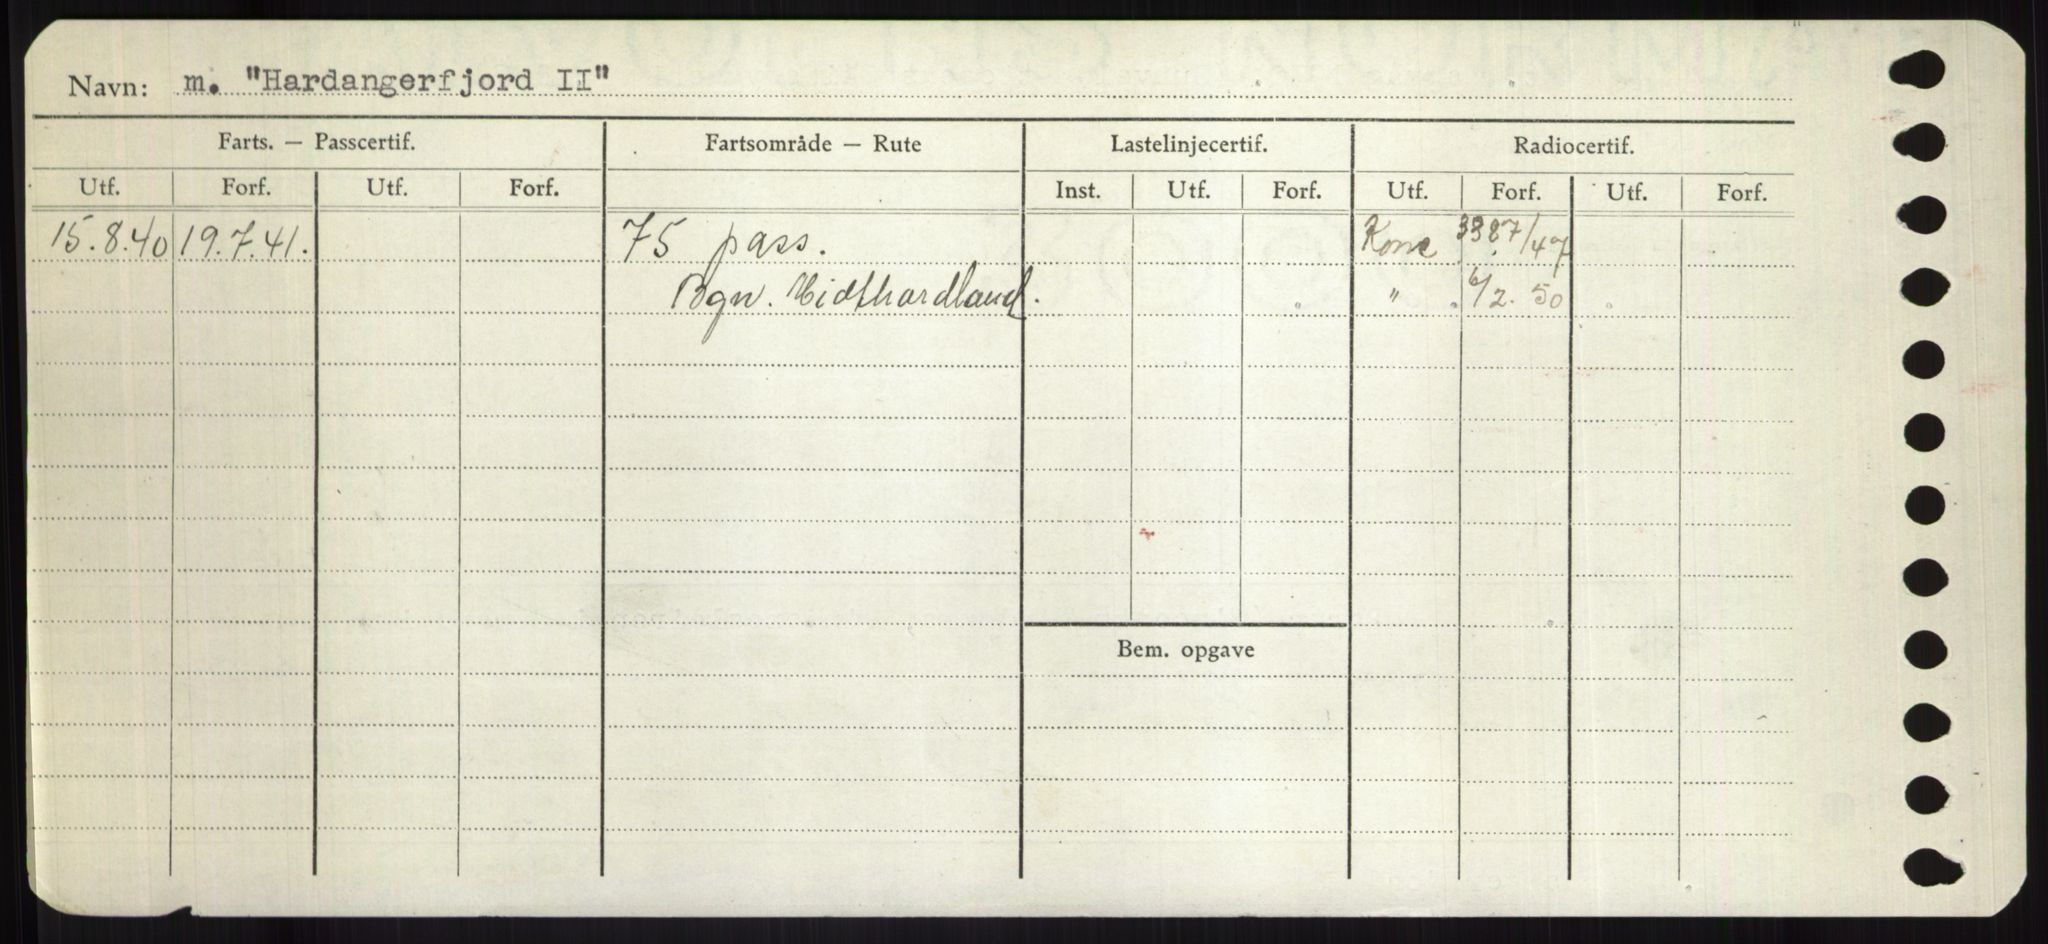 Navn: m. "Hardangerfjord II"
Farts. — Passcertif. Fartsområde — Rute Lastelinjecertif. Radiocertif.
Utf. Forf. Utf. Forf. Inst. Utf. Forf. Utf. Forf. Utf. Forf.
15.8.40 19.7.41. 75 pass. 3387/47
Bgn. Midthordland. " 6/2. 50
Bem. opgave